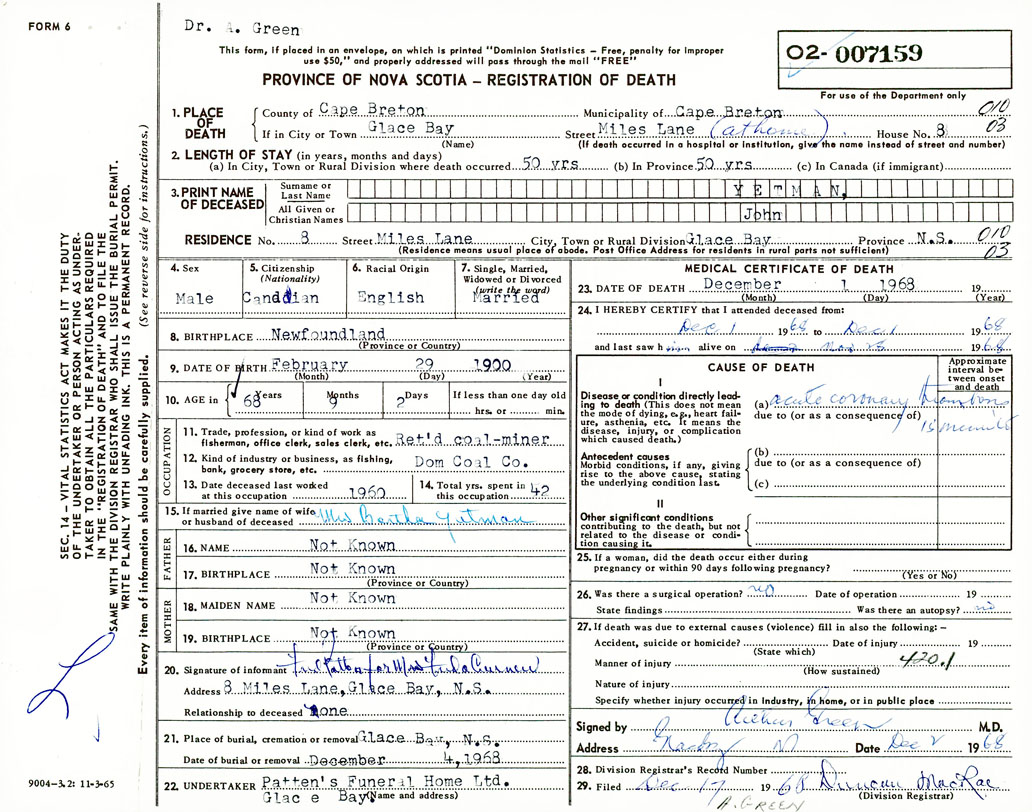 FORM 6
Dr. A. Green
This form, if placed in an envelope, on which is printed "Dominion Statistics – Free, penalty for improper
use $50," and properly addressed will pass through the mail "FREE"
PROVINCE OF NOVA SCOTIA – REGISTRATION OF DEATH
02- 007159
For use of the Department only
1. PLACE OF DEATH
County of Cape Breton Municipality of Cape Breton 010
If in City or Town Glace Bay Street Miles Lane (at home) House No. 8 03
(Name) (If death occurred in a hospital or institution, give the name instead of street and number)
2. LENGTH OF STAY (in years, months and days)
(a) In City, Town or Rural Division where death occurred 50 yrs (b) In Province 50 yrs (c) In Canada (if immigrant)
3. PRINT NAME OF DECEASED
Surname or Last Name YETMAN,
All Given or Christian Names John
RESIDENCE No. 8 Street Miles Lane City, Town or Rural Division Glace Bay Province N.S. 010
(Residence means usual place of abode. Post Office Address for residents in rural parts not sufficient) 03
4. Sex
Male
5. Citizenship
(Nationality)
Canddian
6. Racial Origin
English
7. Single, Married,
Widowed or Divorced
(write the word)
Married
8. BIRTHPLACE Newfoundland
(Province or Country)
9. DATE OF BIRTH February 29 1900
(Month) (Day) (Year)
10. AGE in Years Months Days If less than one day old
68 9 2 hrs. or min.
OCCUPATION
11. Trade, profession, or kind of work as
fisherman, office clerk, sales clerk, etc. Ret'd coal-miner
12. Kind of industry or business, as fishing,
bank, grocery store, etc. Dom Coal Co.
13. Date deceased last worked
at this occupation 1960
14. Total yrs. spent in
this occupation 42
15. If married give name of wife
or husband of deceased Mrs Bertha Yetman
FATHER
16. NAME Not Known
17. BIRTHPLACE Not Known
(Province or Country)
MOTHER
18. MAIDEN NAME Not Known
19. BIRTHPLACE Not Known
(Province or Country)
20. Signature of informant
Address 8 Miles Lane, Glace Bay, N.S.
Relationship to deceased None
21. Place of burial, cremation or removal Glace Bay, N.S.
Date of burial or removal December 4, 1968
22. UNDERTAKER Patten's Funeral Home Ltd.
Glace Bay (Name and address)
MEDICAL CERTIFICATE OF DEATH
23. DATE OF DEATH December 1 1968 19
(Month) (Day) (Year)
24. I HEREBY CERTIFY that I attended deceased from:
Dec. 1 1968 to Dec. 1 1968
and last saw him alive on Nov 28 1968
CAUSE OF DEATH
Approximate interval between onset and death
I
Disease or condition directly leading to death (This does not mean the mode of dying, e.g., heart failure, asthenia, etc. It means the disease, injury, or complication which caused death.)
(a) acute coronary thrombosis
due to (or as a consequence of)
15 minutes
Antecedent causes
Morbid conditions, if any, giving rise to the above cause, stating the underlying condition last.
(b)
due to (or as a consequence of)
(c)
II
Other significant conditions
contributing to the death, but not related to the disease or condition causing it.
25. If a woman, did the death occur either during
pregnancy or within 90 days following pregnancy?
(Yes or No)
26. Was there a surgical operation? no Date of operation 19
State findings Was there an autopsy? no
27. If death was due to external causes (violence) fill in also the following: –
Accident, suicide or homicide? Date of injury 19
(State which)
Manner of injury 420.1
(How sustained)
Nature of injury
Specify whether injury occurred in Industry, in home, or in public place
Signed by Arthur Green M.D.
Address Date Dec 2 1968
28. Division Registrar's Record Number
29. Filed Dec 17 1968 Duncan MacRae
(Division Registrar)
A. GREEN
SEC. 14 – VITAL STATISTICS ACT MAKES IT THE DUTY
OF THE UNDERTAKER OR PERSON ACTING AS UNDER-
TAKER TO OBTAIN ALL THE PARTICULARS REQUIRED
IN THE "REGISTRATION OF DEATH" AND TO FILE THE
SAME WITH THE DIVISION REGISTRAR WHO SHALL ISSUE THE BURIAL PERMIT.
WRITE PLAINLY WITH UNFADING INK. THIS IS A PERMANENT RECORD.
Every item of information should be carefully supplied. (See reverse side for instructions.)
9004-3.2: 11-3-65